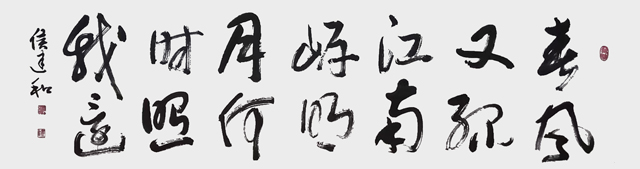 春风
又绿
江南
岸明
月何
时照
我还